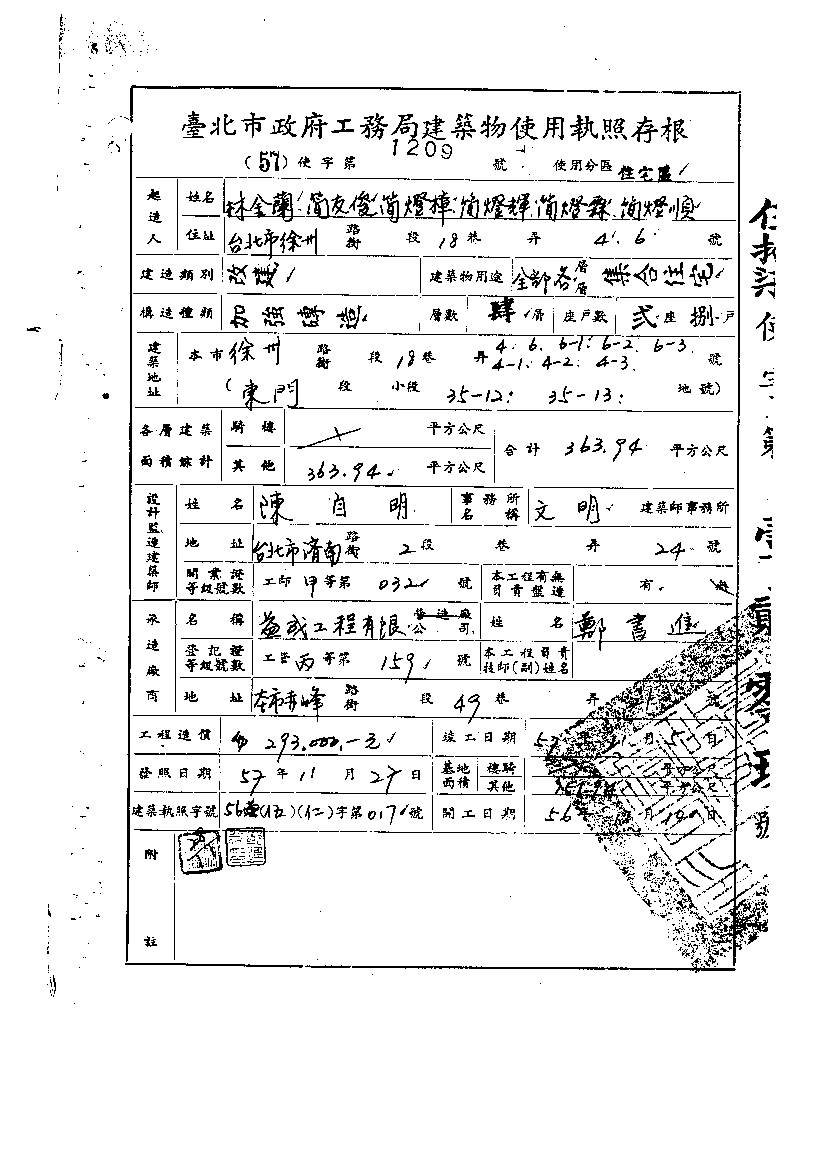 臺北市政府工務局建築物使用執照存根
(57)使字第 1209 號 使用分區 住宅區
起造人 姓名 林金蘭 簡友俊 簡燈樟 簡燈輝 簡燈霖 簡燈順
住址 台北市徐州 路街 段 18巷 弄 4. 6. 號
建造類別 改建 建築物用途 全部各層層 集合住宅
構造種類 加強磚造 層數 肆層 座戶數 貳座 捌戶
建築地址 本市徐州 路街 段 18巷 弄 4. 6. 6-1. 6-2. 6-3 號
4-1. 4-2. 4-3.
(東門 段 小段 35-12. 35-13. 地號)
各層建築 騎樓 平方公尺 合計 363.94 平方公尺
面積總計 其他 363.94. 平方公尺
設計監造建築師 姓名 陳自明 事務所名稱 文明 建築師事務所
地址 台北市濟南 路街 2段 巷 弄 24號
開業證等級號數 工師甲等第 032 號 本工程有無負責監造 有 無
承造廠商 名稱 益成工程有限 營造廠公司 姓名 鄭書進
登記證等級號數 工營丙等第 159 號 本工程負責技師(副)姓名
地址 本市赤峰 路街 段 49巷 弄 號
工程造價 293,000.-元 竣工日期 57年 月 日
發照日期 57年11月27日 基地面積 樓騎 平方公尺
其他 平方公尺
建築執照字號 56 字第017號 開工日期 56 日
附註